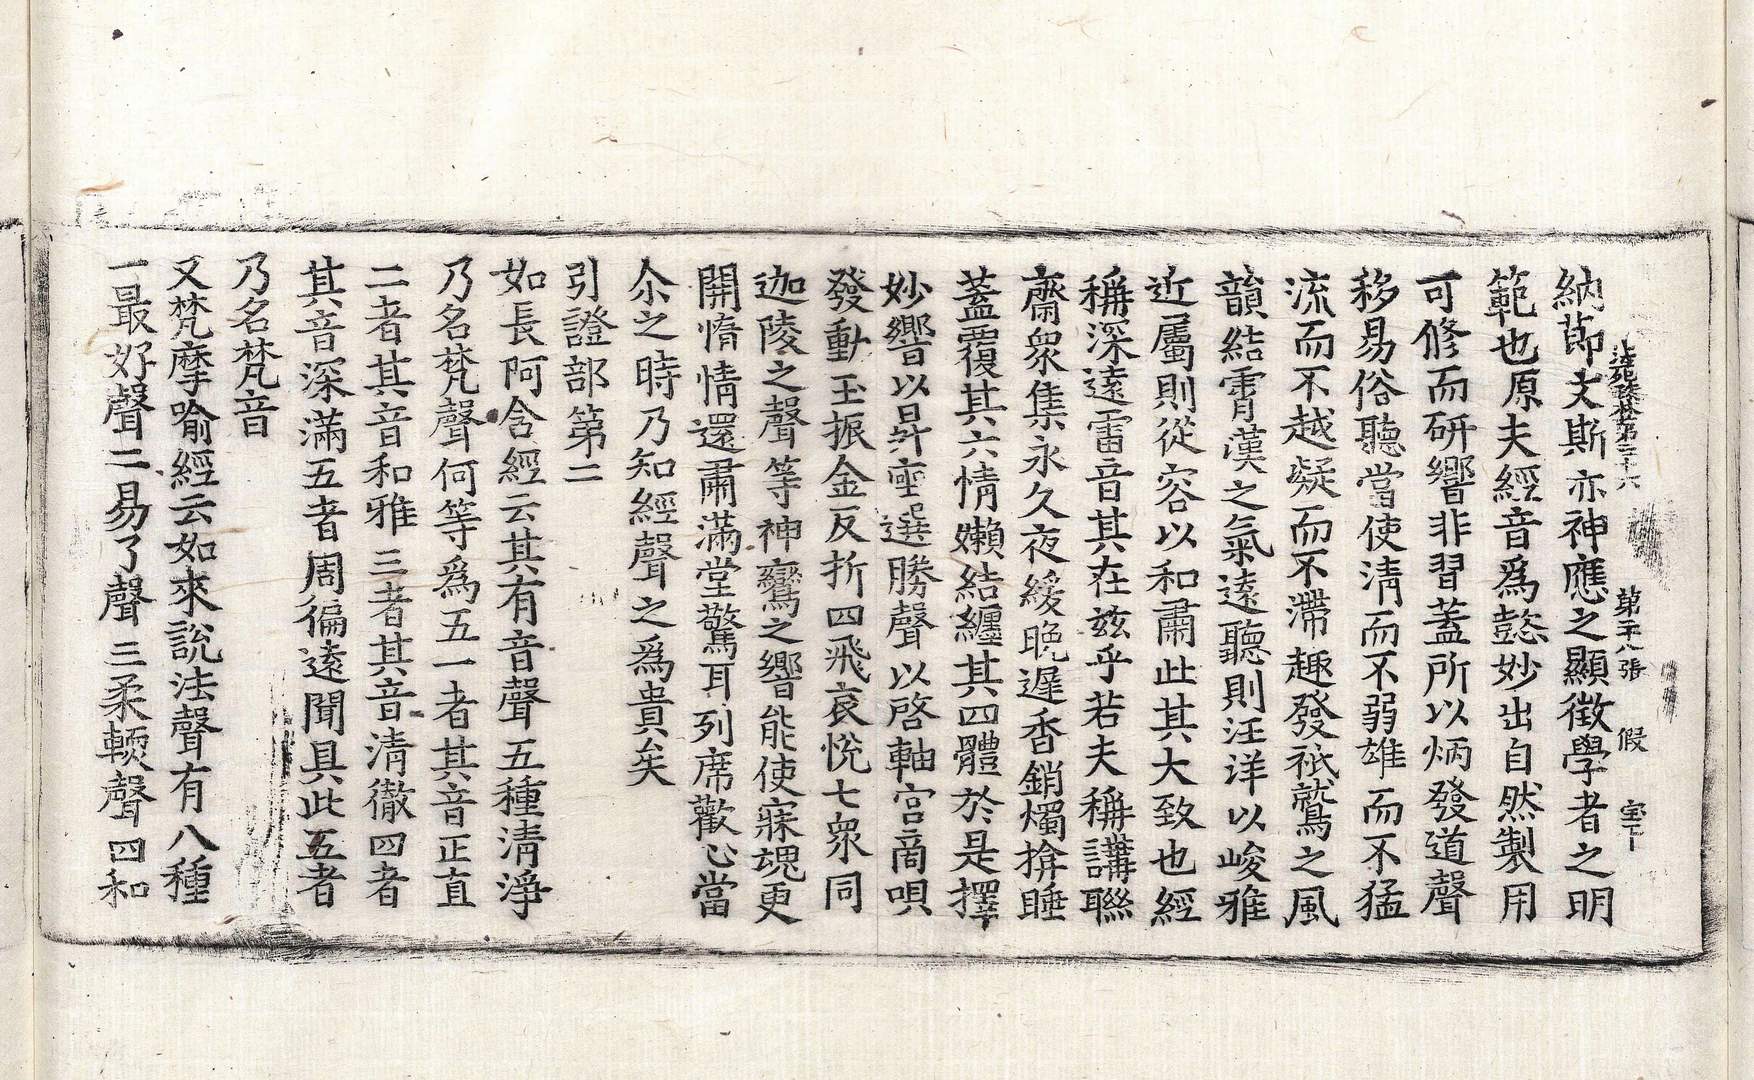 法苑珠林第三十六　第二十八張　假
納節文斯亦神應之顯徵學者之明
範也原夫經音爲懿妙出自然製用
可修而研響非習蓋所以炳發道聲
移易俗聽當使淸而不弱雄而不猛
流而不越凝而不滯趣發祇鷲之風
韻結霄漢之氣遠聽則汪洋以峻雅
近屬則從容以和肅此其大致也經
稱深遠雷音其在茲乎若夫稱講聯
齋衆集永久夜緩晩遲香銷燭揜睡
蓋覆其六情嬾結纏其四體於是擇
妙響以昇座選勝聲以啓軸宮商唄
發動玉振金反折四飛哀悅七衆同
迦陵之聲等神鸞之響能使寐魂更
開惰情還肅滿堂驚耳列席歡心當
尒之時乃知經聲之爲貴矣
引證部第二
如長阿含經云其有音聲五種淸淨
乃名梵聲何等爲五一者其音正直
二者其音和雅三者其音淸徹四者
其音深滿五者周徧遠聞具此五者
乃名梵音
又梵摩喻經云如來說法聲有八種
一最好聲二易了聲三柔輭聲四和